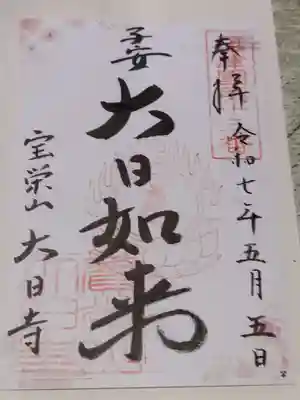 奉拝 令和七年五月五日
子安
大日如来
宝栄山 大日寺